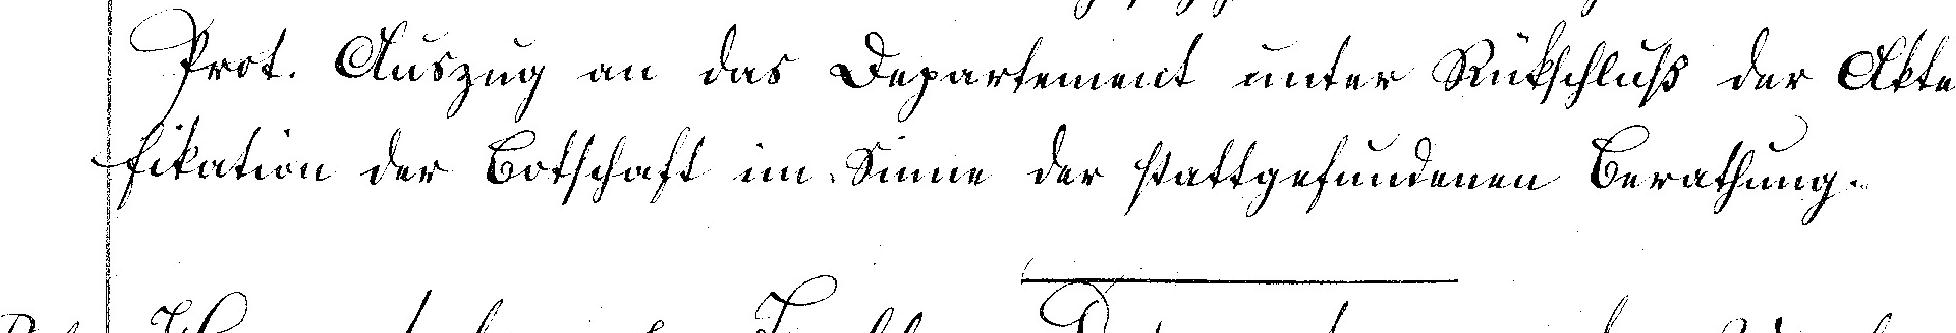 Prot. Auszug an das Departement unter Rükschluß der Akte
fikation der Botschaft im Sinne der stattgefundenen Berathung.